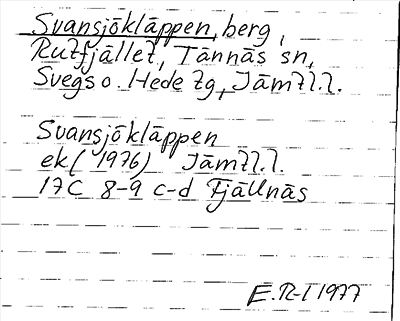 Svansjökläppen, berg,
Rutfjället, Tännäs sn,
Svegs o. Hede tg, Jämtl.l.
Svansjökläppen
ek (1976) Jämtl.l.
17C 8-9 c-d Fjällnäs
E.R-l 1977